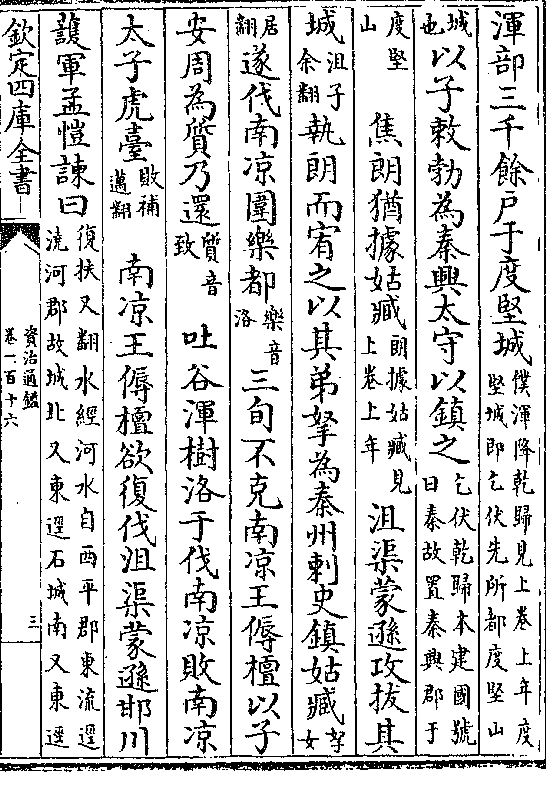 渾部三千餘户于度堅城僕渾降乾歸見上卷上年度
堅城即乞伏先所都度堅山
城也以子敕勃為秦興太守以鎮之乞伏乾歸本建國號
曰秦故置秦興郡于
度堅山 焦朗猶據姑臧朗據姑臧見
上卷上年 沮渠蒙遜攻拔其
城沮子余翻執朗而宥之以其弟拏為秦州刺史鎮姑臧拏女
居翻遂伐南涼圍樂都樂音洛三旬不克南涼王傉檀以子
安周為質乃還質音致 吐谷渾樹洛干伐南涼敗南涼
太子虎臺敗補邁翻 南涼王傉檀欲復伐沮渠蒙遜邯川
䕶軍孟愷諫曰復扶又翻水經河水自西平郡東流逕
澆河郡故城北又東逕石城南又東逕
欽定四庫全書
資治通鑑
卷一百十六
三